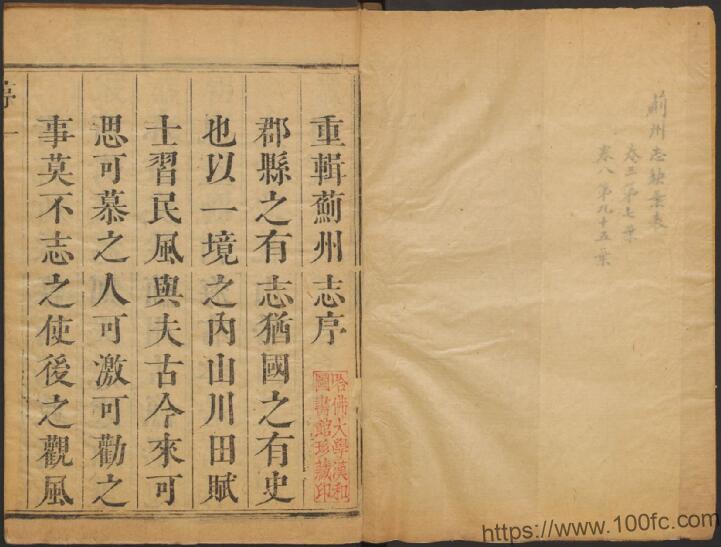 薊州志缺葉表
卷三第七葉
卷八第九十五葉
重輯薊州志序
郡縣之有志猶國之有史
也以一境之內山川田賦
士習民風與夫古今來可
思可慕之人可激可勸之
事莫不志之使後之觀風
序 一
哈佛大學漢和
圖書館珍藏印
https://www.100fc.com